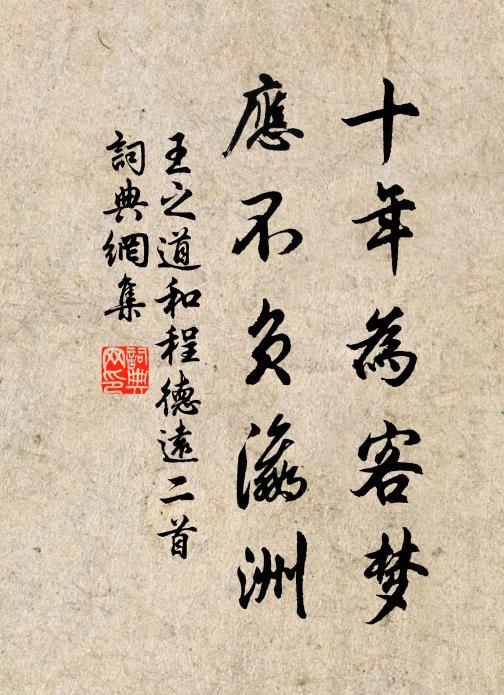 十年為客梦
應不負瀛洲
王之道和程德遠二首
詞典網集
詞典网印